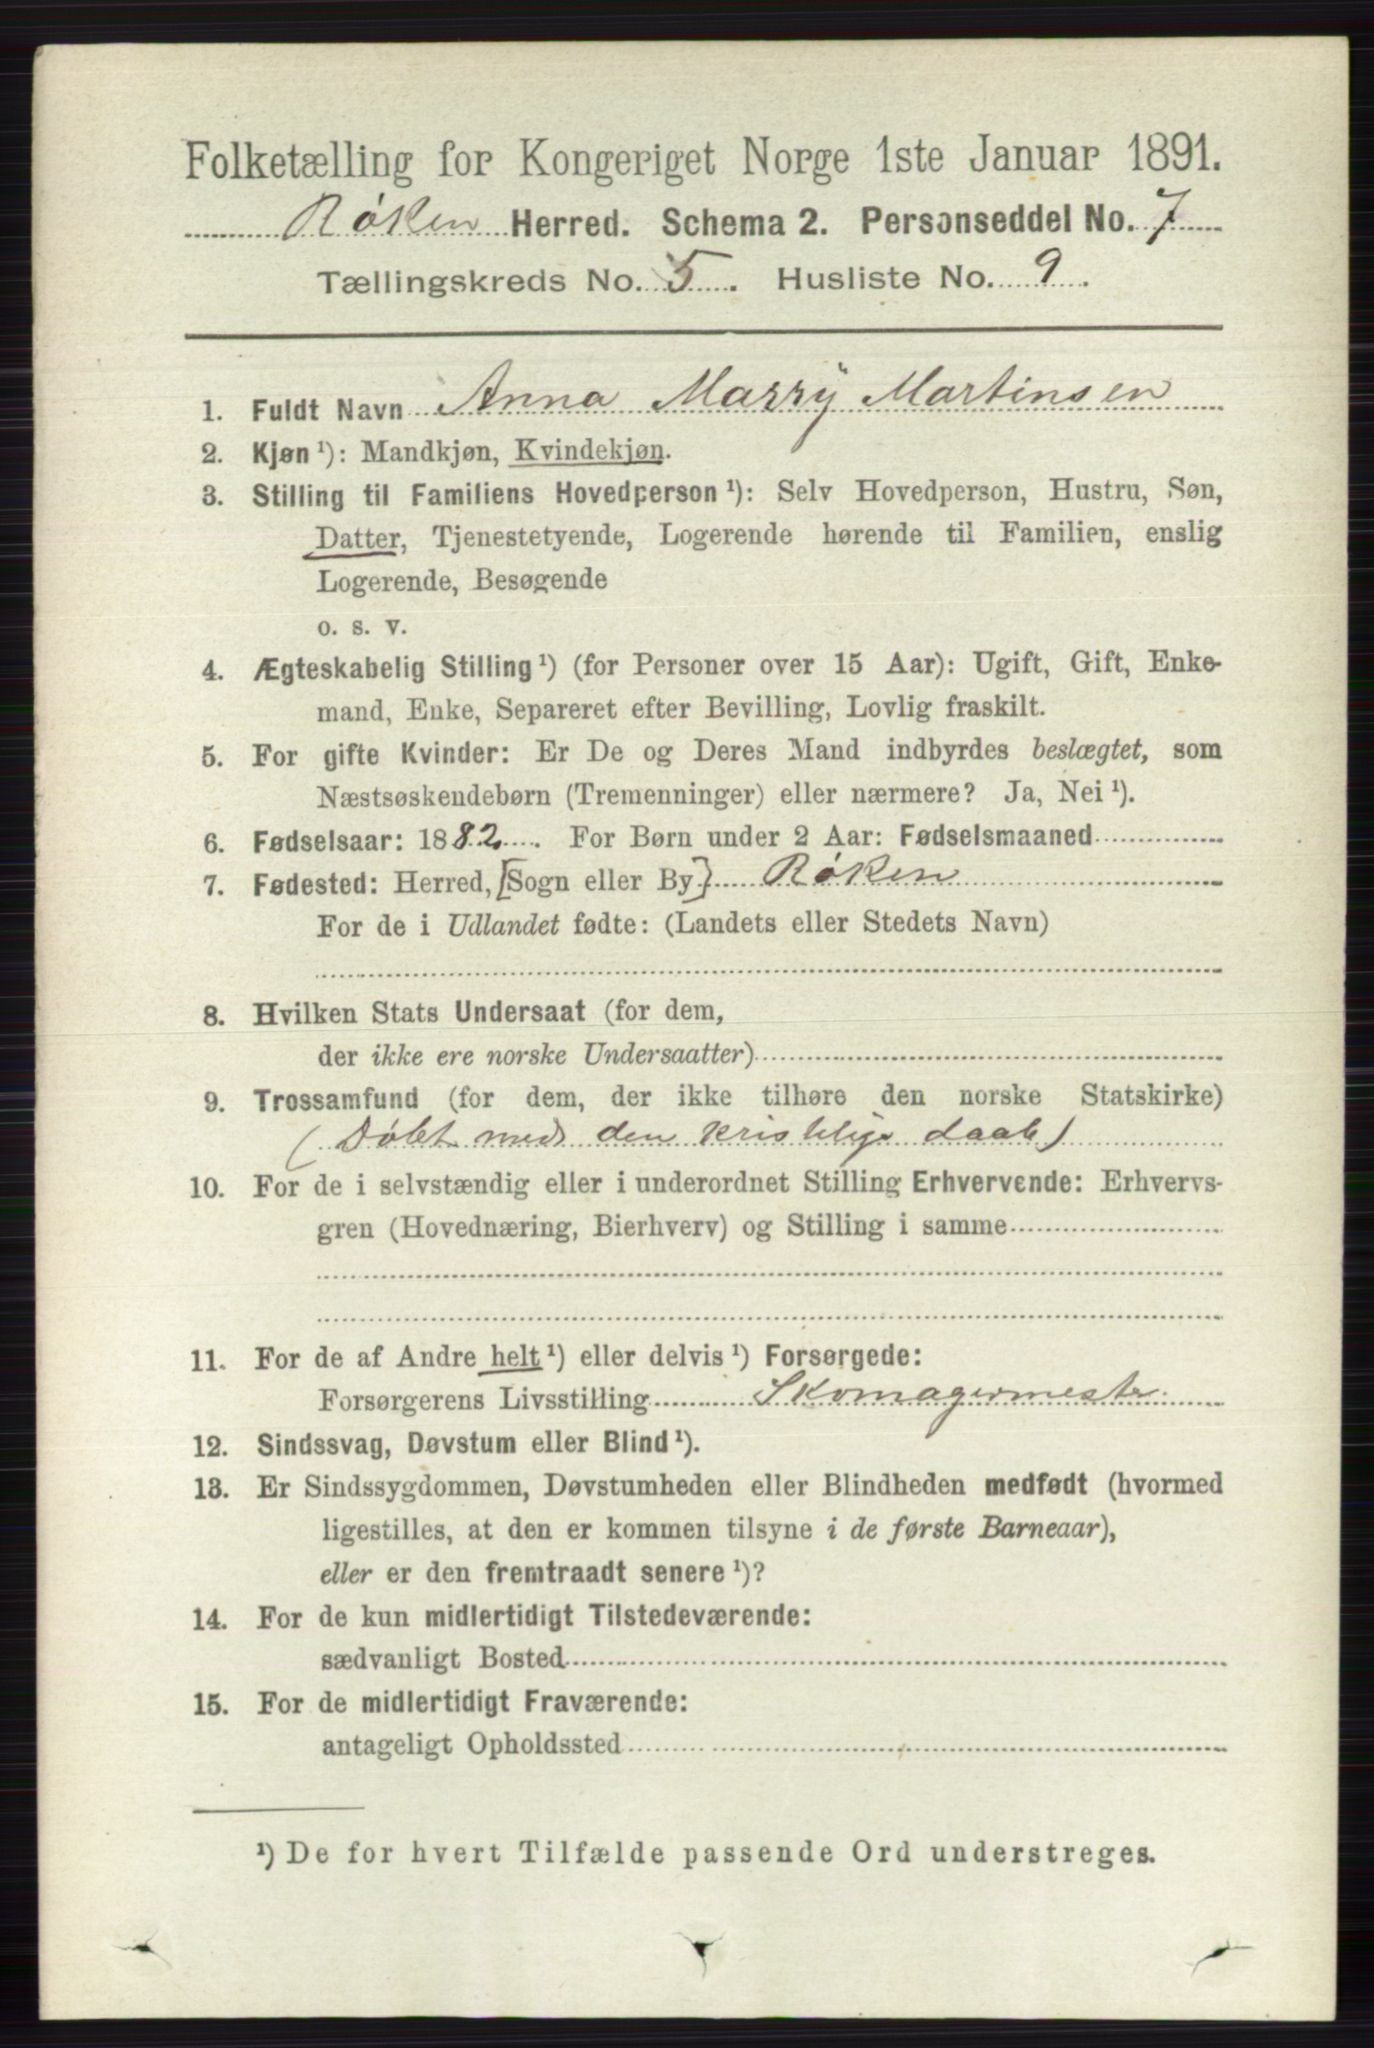 Folketælling for Kongeriget Norge 1ste Januar 1891.
Røken Herred. Schema 2. Personseddel No. 7
Tællingskreds No. 5. Husliste No. 9.
1. Fuldt Navn Anna Marry Martinsen
2. Kjøn ¹): Mandkjøn, Kvindekjøn.
3. Stilling til Familiens Hovedperson ¹): Selv Hovedperson, Hustru, Søn,
Datter, Tjenestetyende, Logerende hørende til Familien, enslig
Logerende, Besøgende
o. s. v.
4. Ægteskabelig Stilling ¹) (for Personer over 15 Aar): Ugift, Gift, Enke-
mand, Enke, Separeret efter Bevilling, Lovlig fraskilt.
5. For gifte Kvinder: Er De og Deres Mand indbyrdes beslægtet, som
Næstsøskendebørn (Tremenninger) eller nærmere? Ja, Nei ¹).
6. Fødselsaar: 1882. For Børn under 2 Aar: Fødselsmaaned
7. Fødested: Herred, [Sogn eller By] Røken
For de i Udlandet fødte: (Landets eller Stedets Navn)
8. Hvilken Stats Undersaat (for dem,
der ikke ere norske Undersaatter)
9. Trossamfund (for dem, der ikke tilhøre den norske Statskirke)
(Døbt med den kristelige daab)
10. For de i selvstændig eller i underordnet Stilling Erhvervende: Erhvervs-
gren (Hovednæring, Bierhverv) og Stilling i samme
11. For de af Andre helt ¹) eller delvis ¹) Forsørgede:
Forsørgerens Livsstilling Skomagermester
12. Sindssvag, Døvstum eller Blind ¹).
13. Er Sindssygdommen, Døvstumheden eller Blindheden medfødt (hvormed
ligestilles, at den er kommen tilsyne i de første Barneaar),
eller er den fremtraadt senere ¹)?
14. For de kun midlertidigt Tilstedeværende:
sædvanligt Bosted
15. For de midlertidigt Fraværende:
antageligt Opholdssted
¹) De for hvert Tilfælde passende Ord understreges.